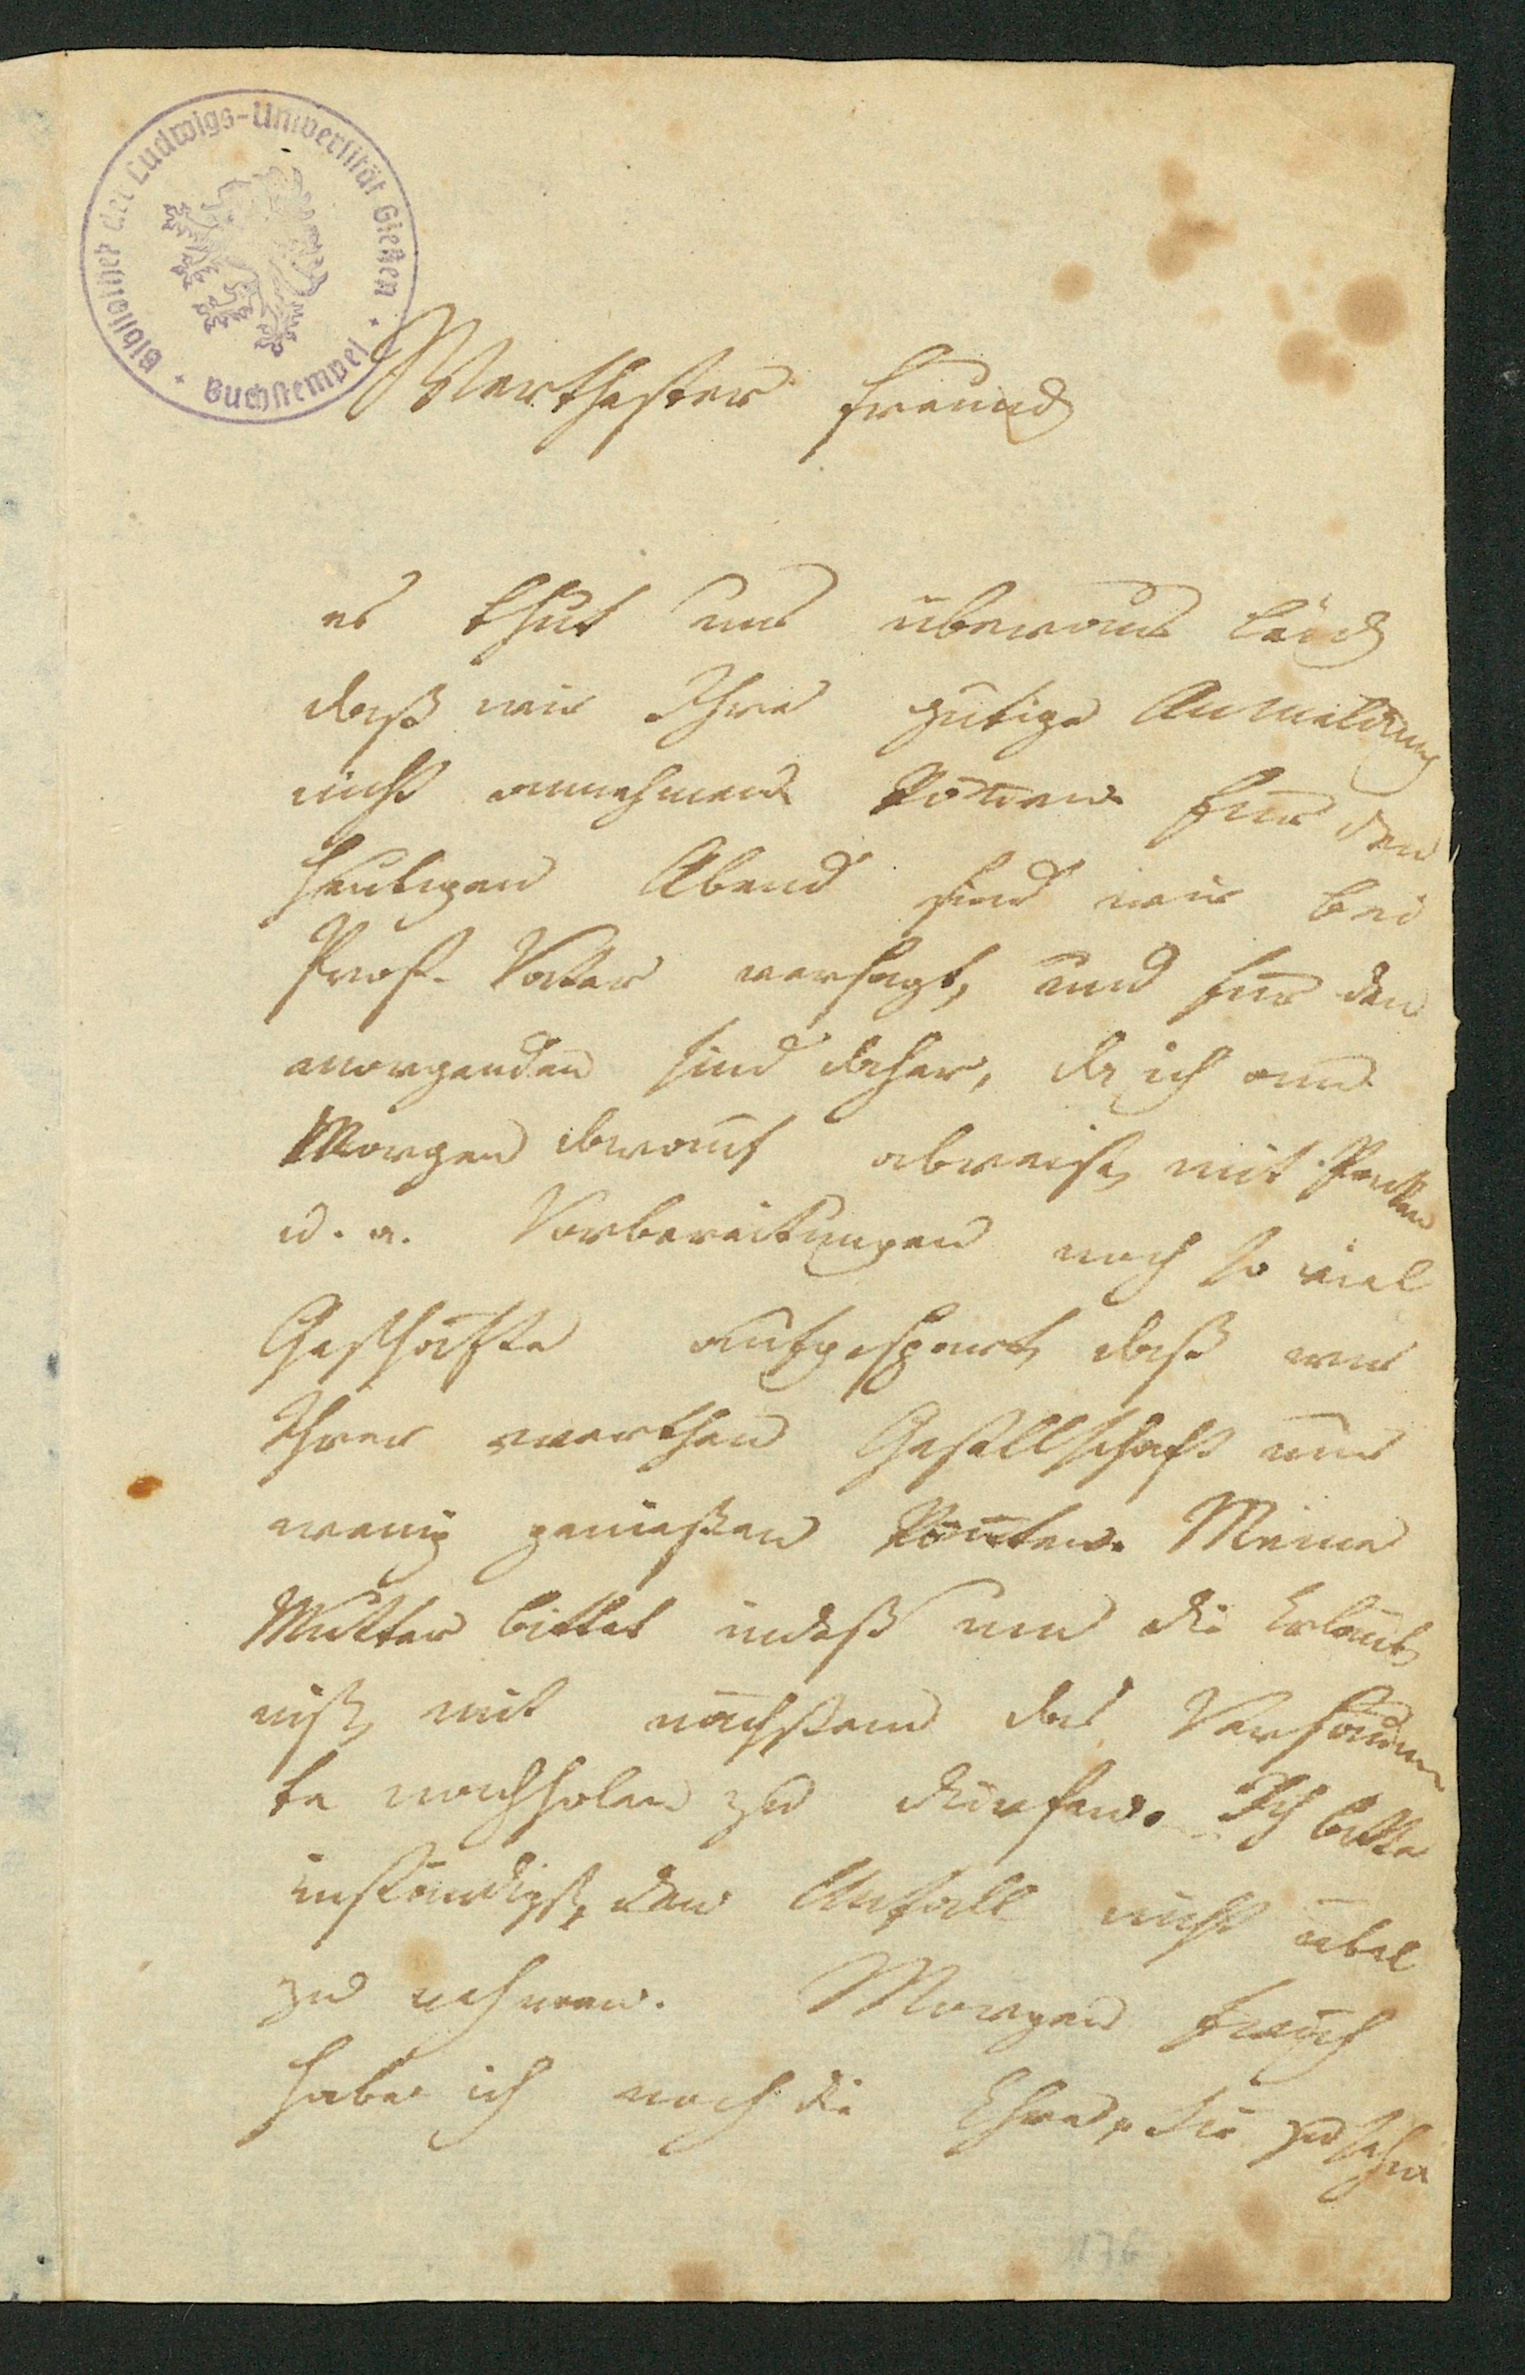 Bibliothek der Ludwigs-Universität Gießen · Buchstempel ·
Werthester Freund
es thut uns überaus leid
daß wir Ihre gütige Anmeldung
nicht annehmen können für den
heutigen Abend sind wir bei
Prof. Vater versagt, und für den
morgenden sind daher, da ich am
Morgen darauf abreise, mit Packen
u. a. Vorbereitungen noch so viel
Geschäfte aufgespart, daß wir
Ihrer werthen Gesellschaft nur
wenig genießen könnten. Meine
Mutter bittet indeß um die Erlaub
niß, mit nächstem das Versäum
te nachholen zu dürfen. Ich bitte
inständigst, den Unfall nicht übel
zu nehmen. Morgen früh
habe ich noch die Ehre, Sie zu sehn
176